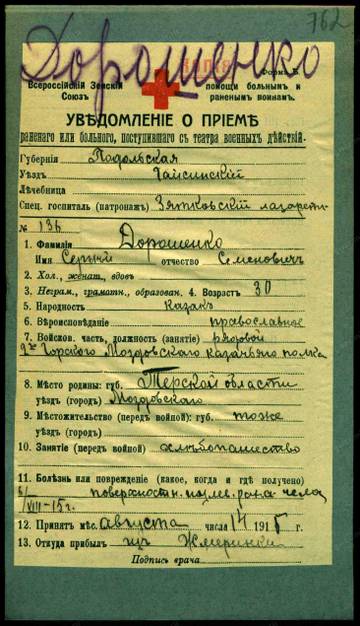 762
Дорошенко
Форма
Всероссійскій Земскій
Союзъ
помощи больнымъ и
раненымъ воинамъ.
УВѢДОМЛЕНІЕ О ПРІЕМѢ
раненаго или больного, поступившаго съ театра военныхъ дѣйствій.
Губернія Подольская
Уѣздъ Гайсинскій
Лѣчебница
Спец. госпиталь (патронажъ) Зятковскій лазаретъ
№ 136
1. Фамилія Дорошенко
Имя Сергѣй отчество Семеновичъ
2. Хол., женат., вдовъ
3. Неграм., грамотн., образован. 4. Возрастъ 30
5. Народность казакъ
6. Вѣроисповѣданіе православное
7. Войсков. часть, должность (занятіе) рядовой
Горскаго Моздовскаго казачьяго полка
8. Мѣсто родины: губ. Терской области
уѣздъ (городъ) Моздовскаго
9. Мѣстожительство (передъ войной): губ. тоже
уѣздъ (городъ)
10. Занятіе (передъ войной) хлѣбопашество
11. Болѣзнь или поврежденіе (какое, когда и гдѣ получено)
поверхностн. пул. рана чела
6/VIII-15 г.
12. Принятъ мѣс. августа числа 14 1915 г.
13. Откуда прибылъ изъ Жмеринки
Подпись врача